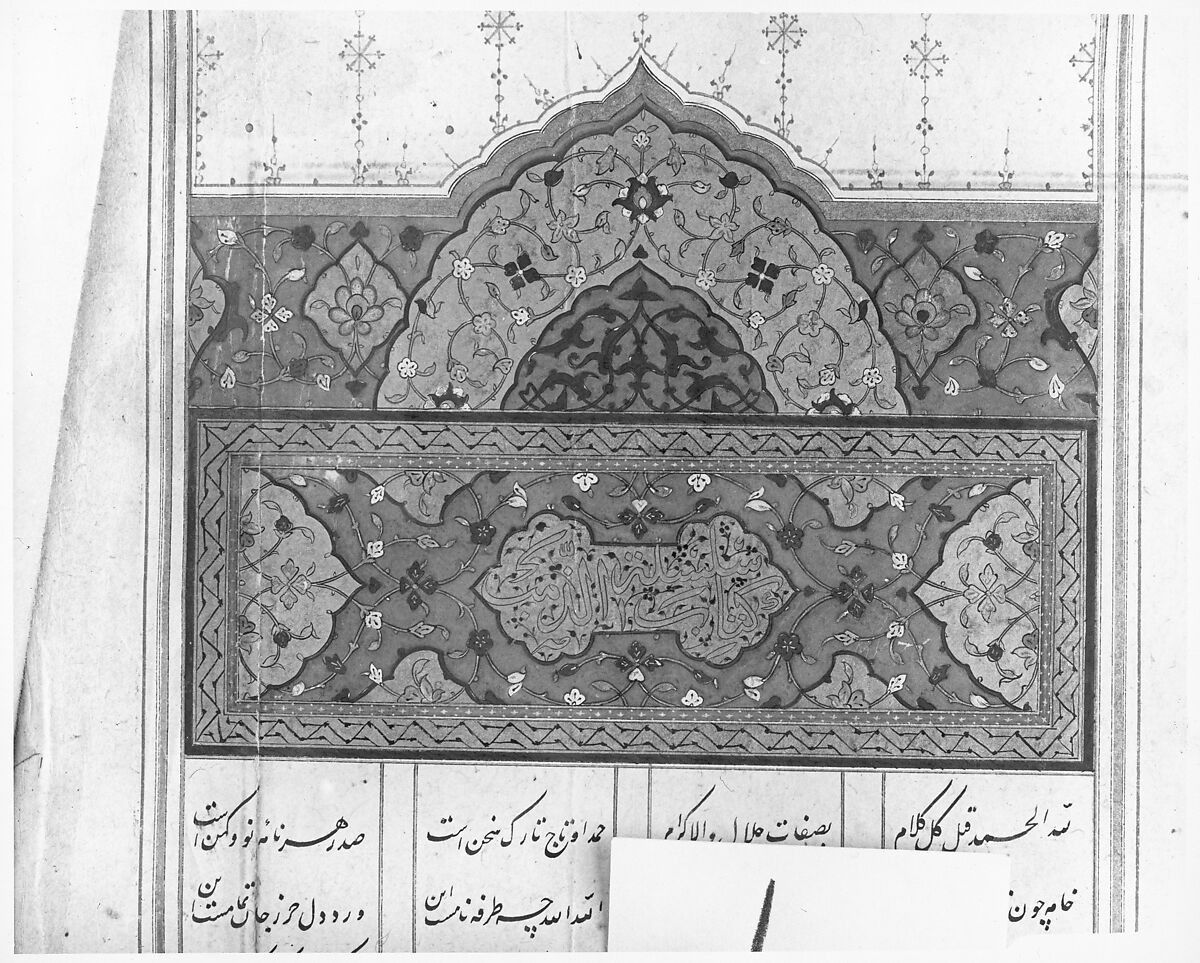 کتاب سلسلة الذهب
لله الحمد قبل کل کلام بصفات جلال والاکرام حمد او تاج تارک سخن است صدر هر نامهٔ نو و کهن است
خامه چون الله الله چه طرفه نامست این ورد دل حرز جان تمامست این